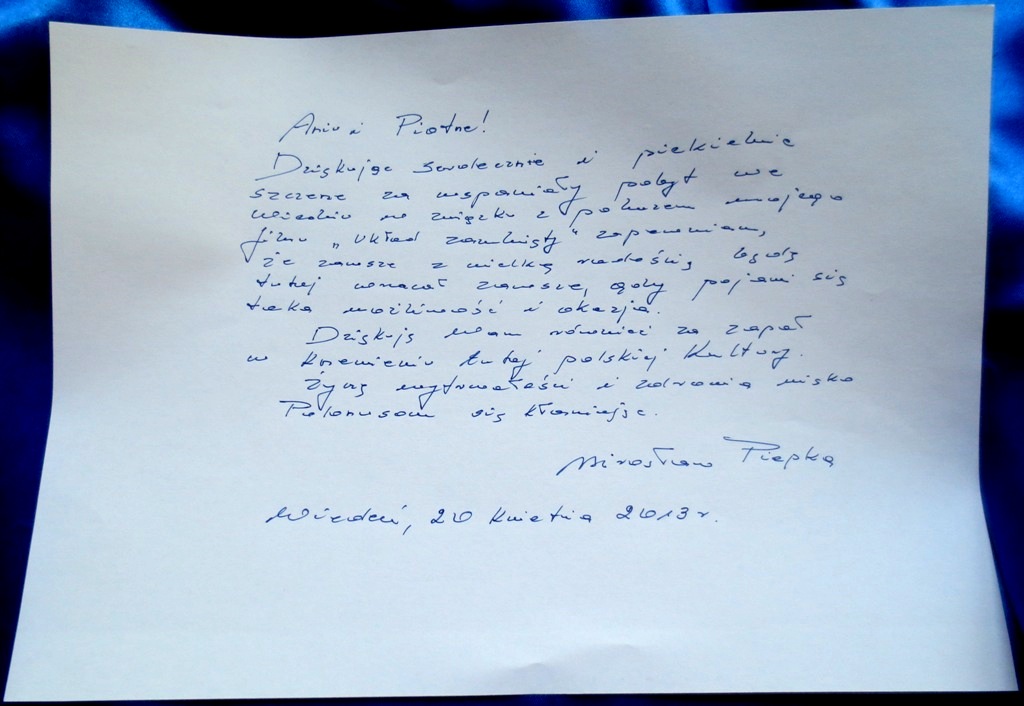 Aniu i Piotrze!
Dziękując serdecznie i piekielnie
szczerze za wspaniały pobyt we
Wiedniu w związku z pokazem mojego
filmu „Układ zamknięty" zapewniam,
że zawsze z wielką radością będę
tutaj wracał zawsze, gdy pojawi się
taka możliwość i okazja.
Dziękuję Wam również za zapał
w krzewieniu tutaj polskiej Kultury.
Życzę wytrwałości i zdrowia nisko
Polonusom się kłaniając.
Mirosław Piepka
Wiedeń, 20 kwietnia 2013 r.